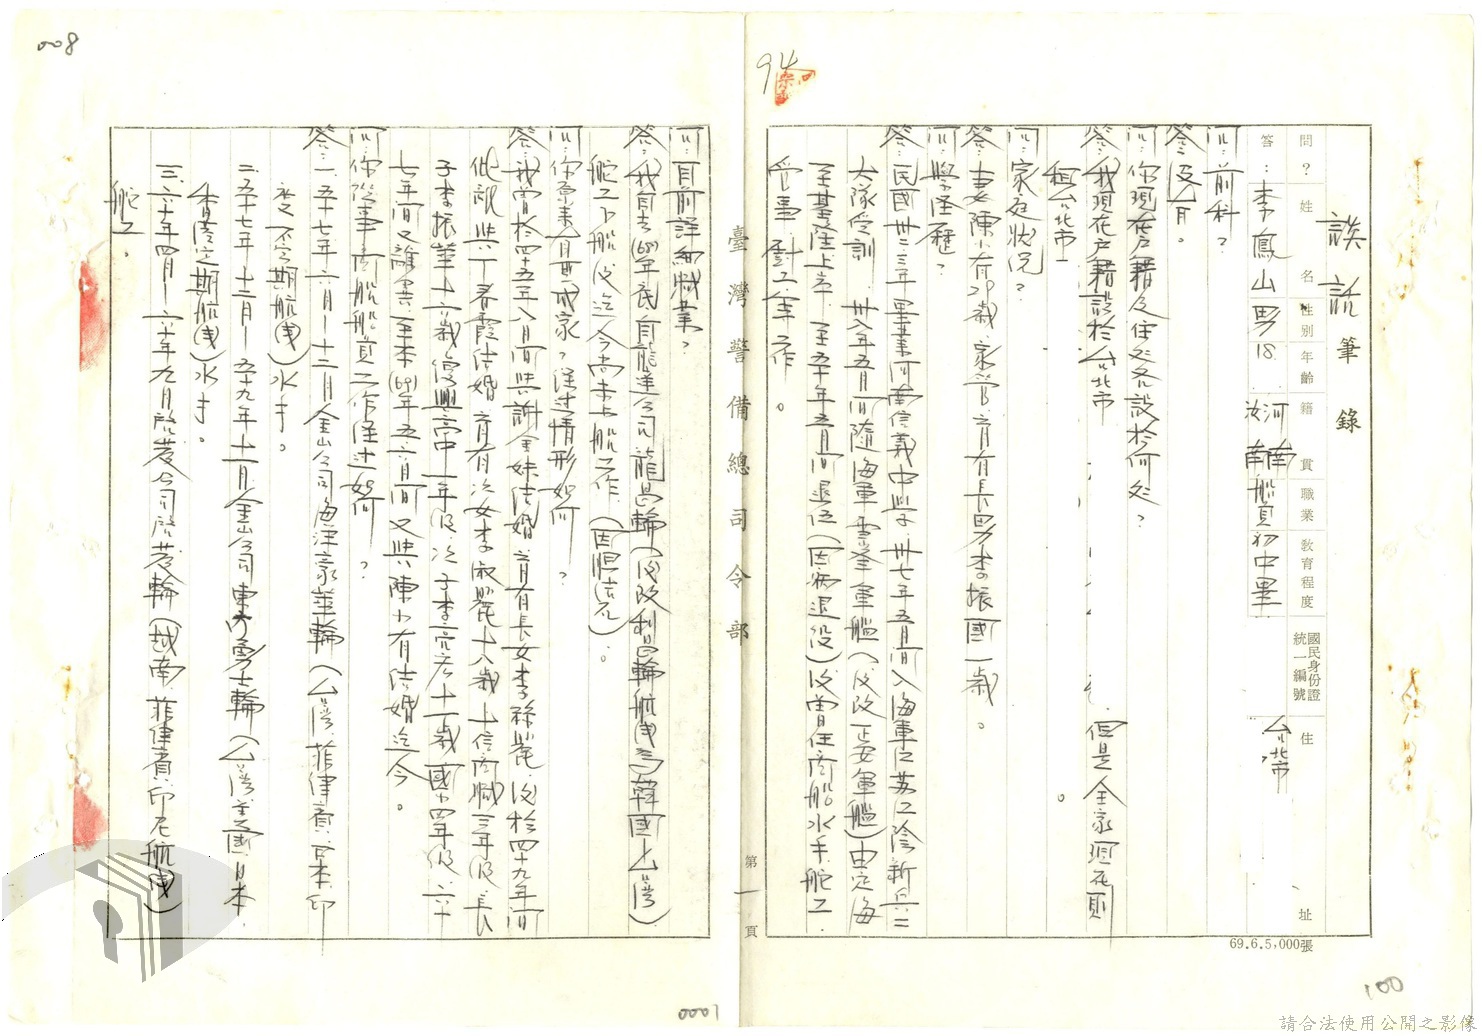 008
94
談話筆錄
問？姓名性別年齡籍貫職業教育程度國民身份證統一編號住址
答：李鳳山男18河南船員初中畢台北市
問：前科？
答：沒有。
問：你現在戶籍及住處各設於何處？
答：我現在戶籍設於台北市 但是全家現在則
租台北市 。
問：家庭狀況？
答：妻陳小有29歲、家管、育有長男李振國一歲。
問：學經歷？
答：民國卅二、三年畢業河南信義中學、卅七年五月間入海軍江蘇江陰新兵二
大隊受訓、卅八年五月間隨海軍 軍艦（後改正安軍艦）由定海
至基隆上岸、至五十年五月間退伍（因病退役）後曾任商船水手、舵工、
管事、 工等工作。
臺灣警備總司令部
第一頁
問：目前詳細職業？
答：我自去(68)年底自龍運公司龍昌輪（後改利昌輪航線為韓國－台灣）
舵工下船後迄今尚未上船工作、（因眼 ）。
問：你原來有無成家？經過情形如何？
答：我曾於四十五年八月間與謝金妹結婚、育有長女李 麗、後於四十九年間
彼 與丁春霞結婚、育有次女李淑麗十八歲、上信商職三年級、長
子李振華十六歲復興高中一年級、次子李 宏十一歲國小四年級、六十
七年間又離異、至本(69)年五、六月間又與陳小有結婚迄今。
問：你從事商船船員工作經過如何？
答：一、五十七年六月－十二月金山公司海洋豪華輪（台灣、菲律賓、日本、印
度不定期航線）水手。
二、五十七年十二月－五十九年十一月金山公司東方勇士輪（台灣、美國、日本、
香港定期航線）水手。
三、六十年四月－六十年九月啟發公司啟發輪（越南、菲律賓、印尼航線）
舵工。
69.6.5,000張
100
0001
請合法使用公開之影像